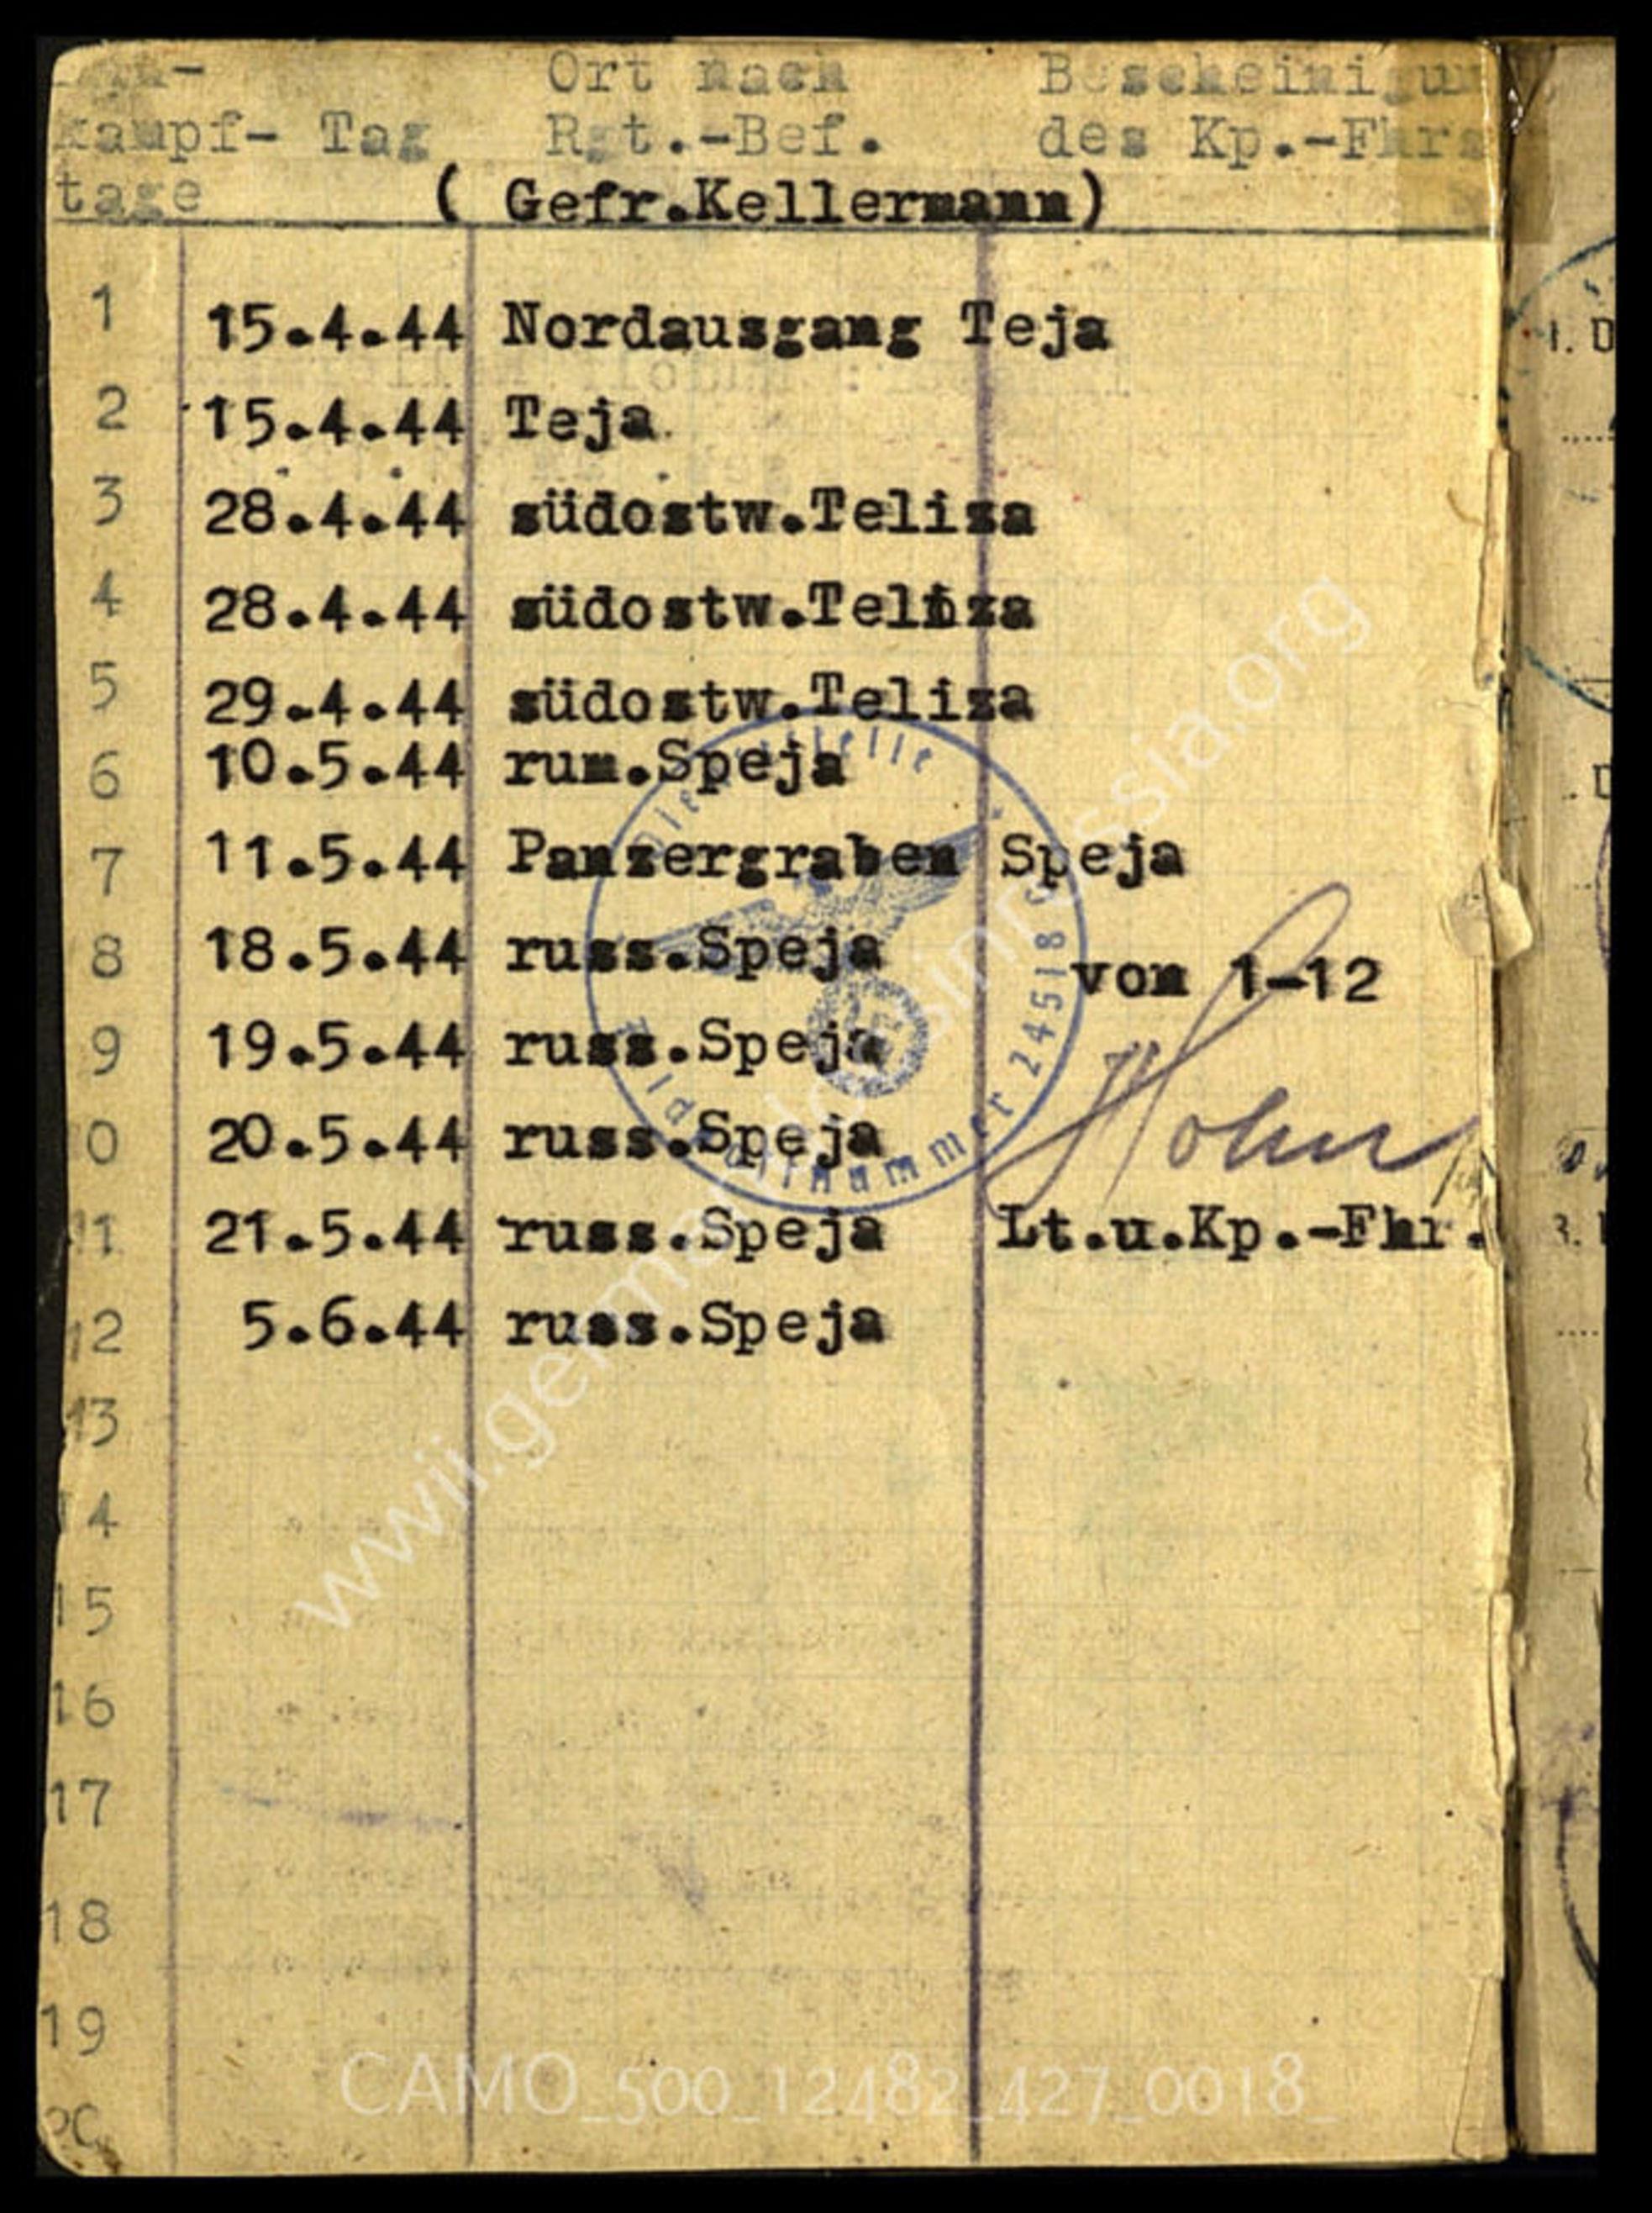 kampf- Tag Ort nach Bescheinigun
tage Rgt.-Bef. des Kp.-Fhrs
( Gefr.Kellermann)
1 15.4.44 Nordausgang Teja
2 15.4.44 Teja
3 28.4.44 südostw.Teliza
4 28.4.44 südostw.Teliza
5 29.4.44 südostw.Teliza
6 10.5.44 rum.Speja
7 11.5.44 Panzergraben Speja
8 18.5.44 russ.Speja von 1-12
9 19.5.44 russ.Speja
10 20.5.44 russ.Speja
11 21.5.44 russ.Speja Lt.u.Kp.-Fhr.
12 5.6.44 russ.Speja
13
14
15
16
17
18
19
Dienststelle
Feldpostnummer 24518
wwii.germandocsinrussia.org
CAMO_500_12482_427_0018_